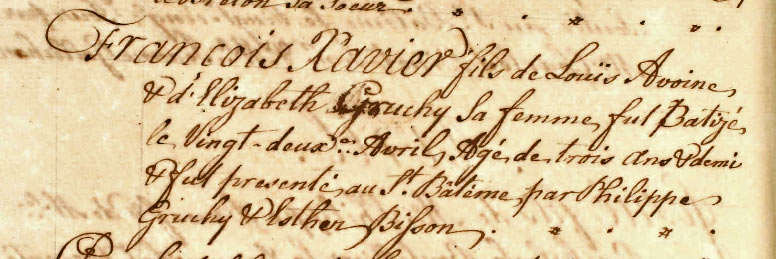 sa soeur.
François Xavier fils de Louïs Avoine
& d'Elizabeth Gruchy sa femme, fut Batizé
le Vingt-deuxe. Avril, Agé de trois ans & demi
& fut presenté au St. Bâteme par Philippe
Gruchy & Esther Bisson.